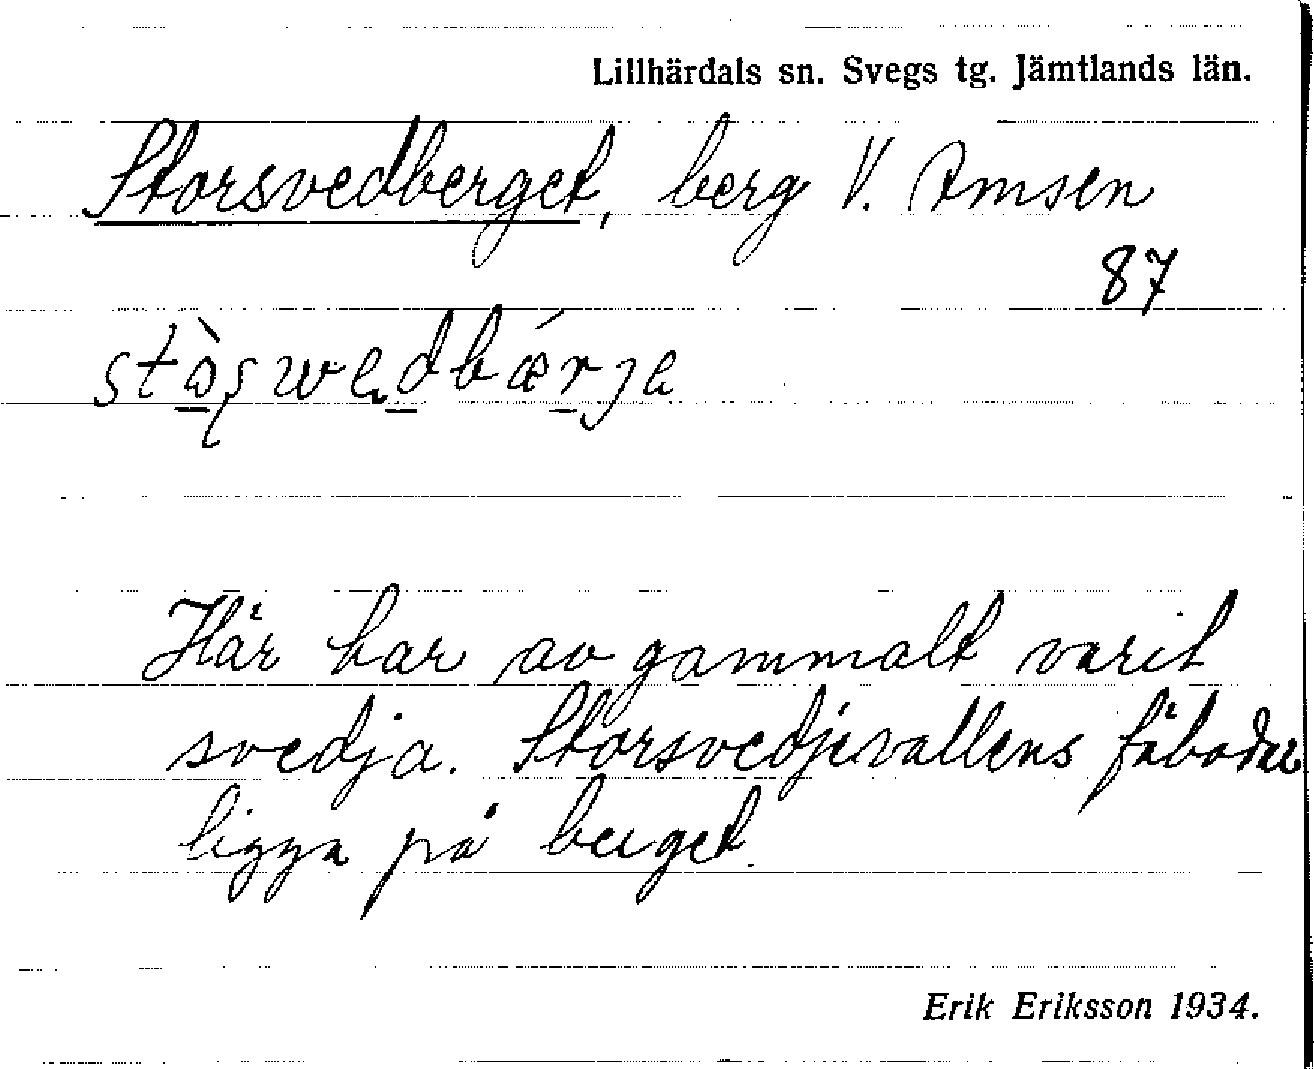 Lillhärdals sn. Svegs tg. Jämtlands län.
Storsvedberget, berg V. Amsen
87
stò̱ʂwe̱dbǽr̠ja
Här har av gammalt varit
svedja. Storsvedjevallens fäbodar
ligga på berget.
Erik Eriksson 1934.